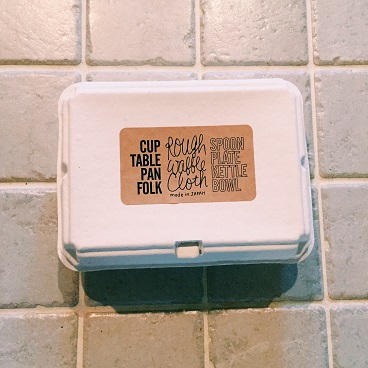 CUP
TABLE
PAN
FOLK
Rough
Waffle
Cloth
made in JAPAN
SPOON
PLATE
KETTLE
BOWL